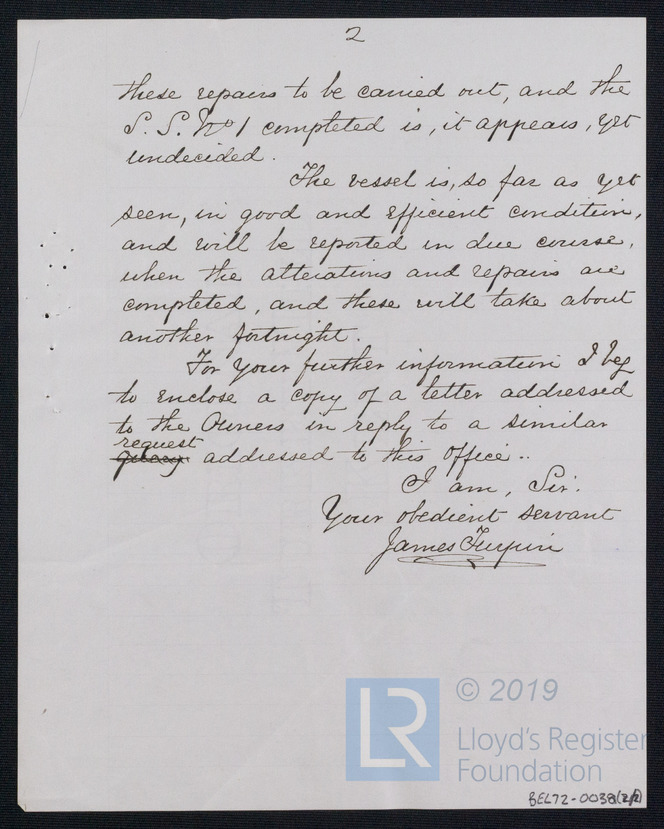 2
these repairs to be carried out, and the
S. S. No 1 completed is, it appears, yet
undecided.
The vessel is, so far as yet
seen, in good and efficient condition,
and will be reported in due course,
when the alterations and repairs are
completed, and these will take about
another fortnight.
For your further information I beg
to enclose a copy of a letter addressed
to the Owners in reply to a similar
request
query addressed to this office..
I am, Sir.
Your obedient servant
James Turpin
LR
© 2019
Lloyd's Register
Foundation
BEL72-0038(2/2)